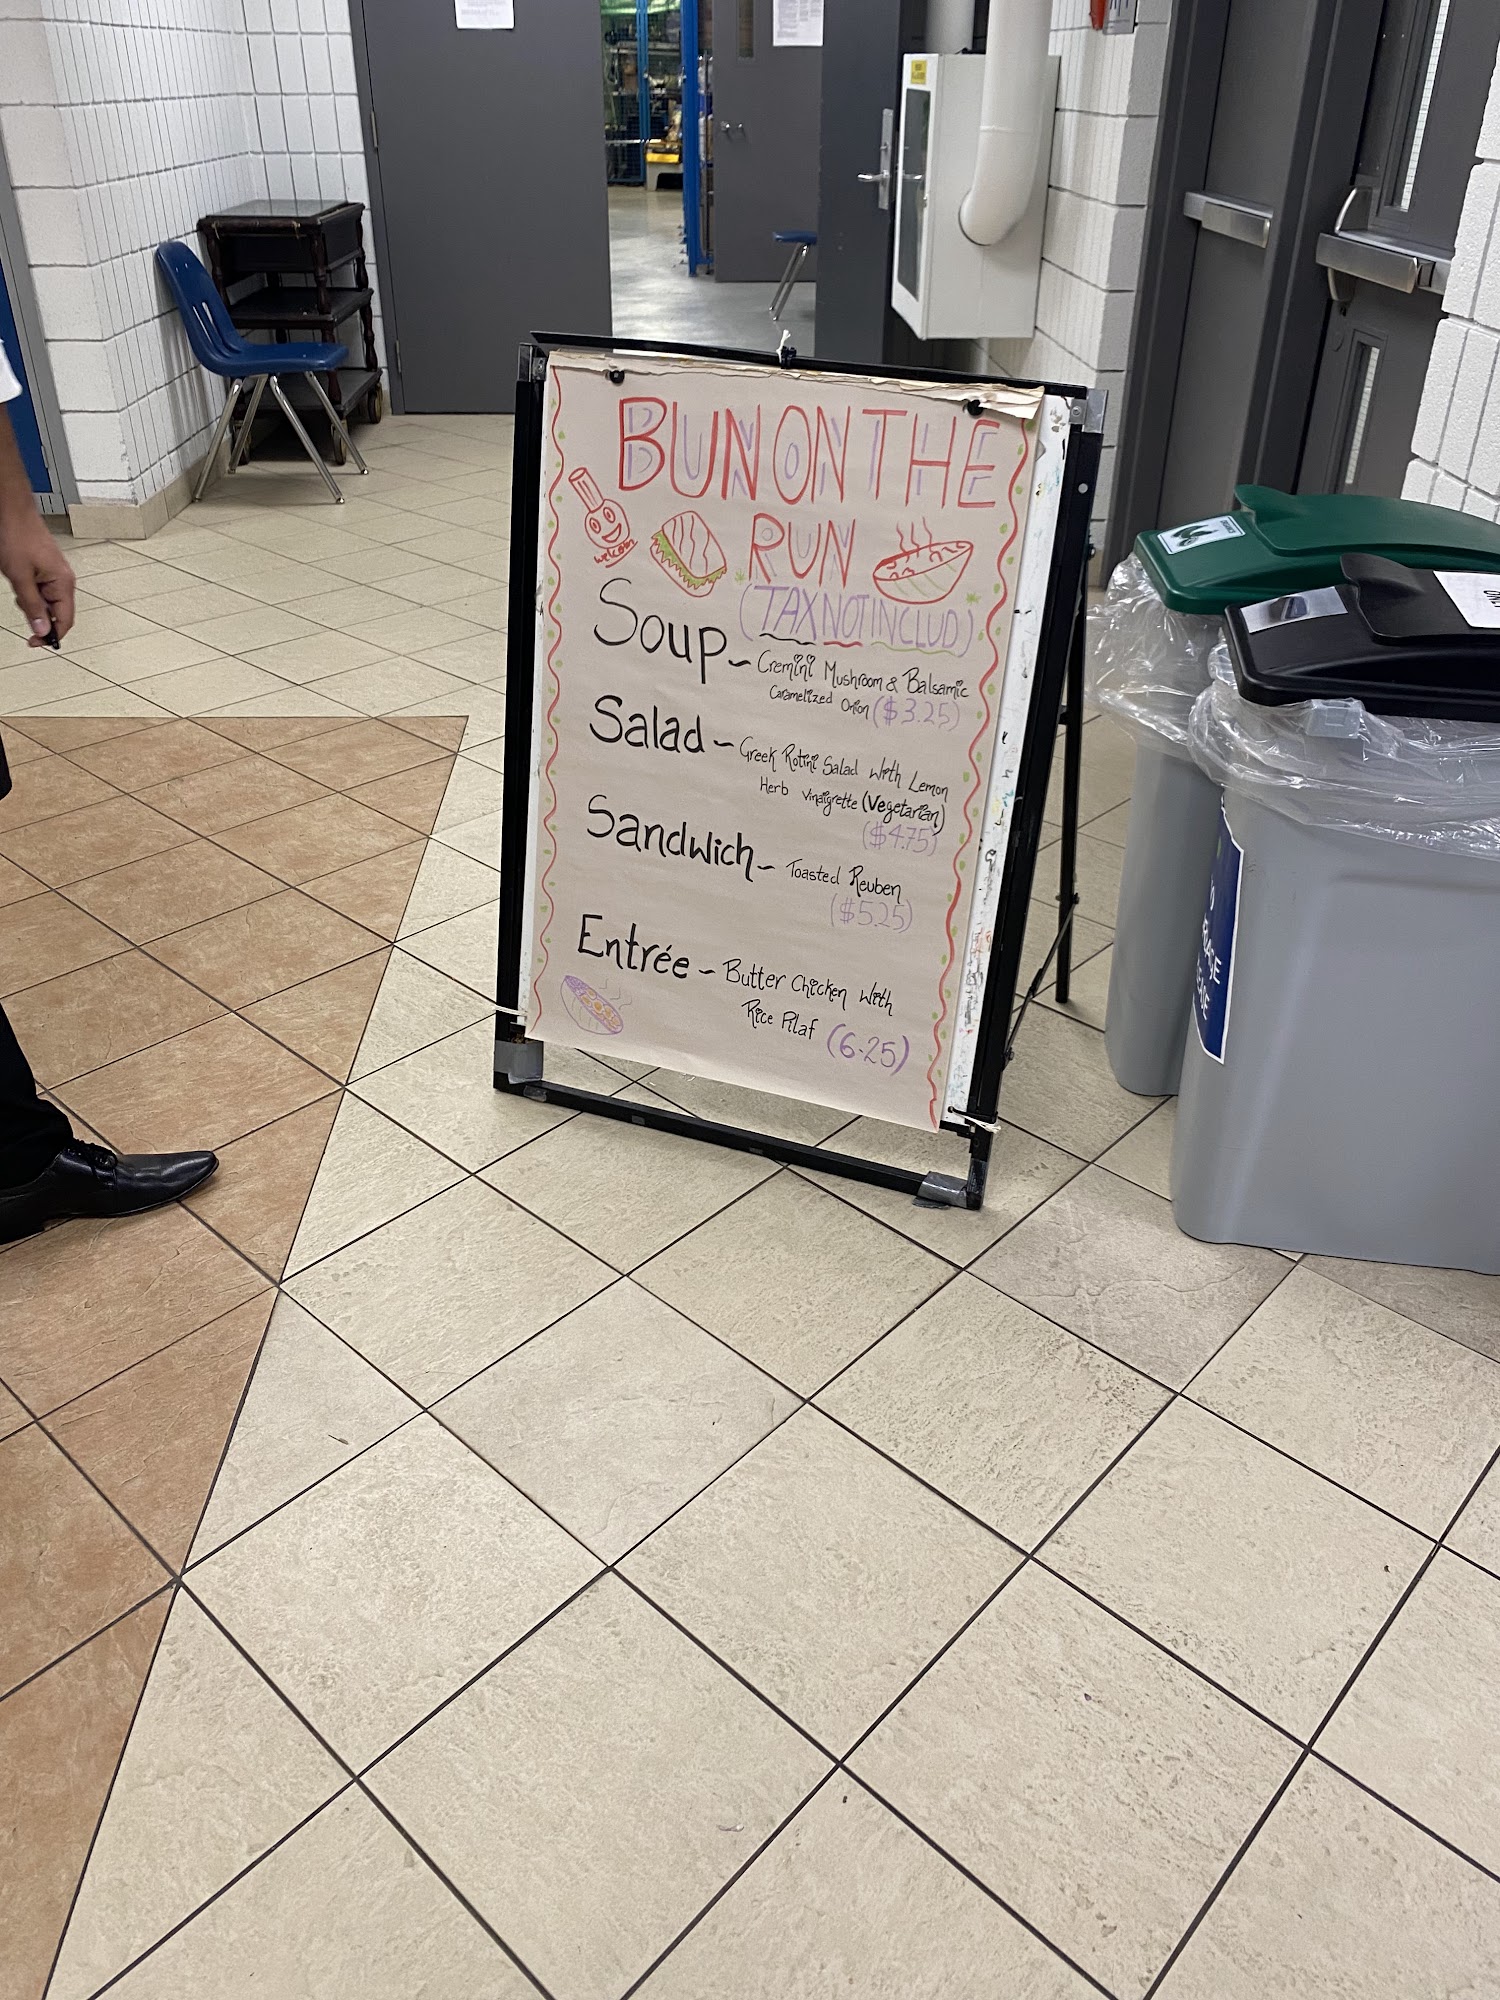 BUN ON THE
RUN
welcom
(TAX NOT INCLUD)
Soup ~ Cremini Mushroom & Balsamic
Caramelized Onion ($3.25)
Salad ~ Greek Rotini Salad with Lemon
Herb Vinaigrette (Vegetarian)
($4.75)
Sandwich ~ Toasted Reuben
($5.25)
Entrée ~ Butter Chicken with
Rice Pilaf (6.25)